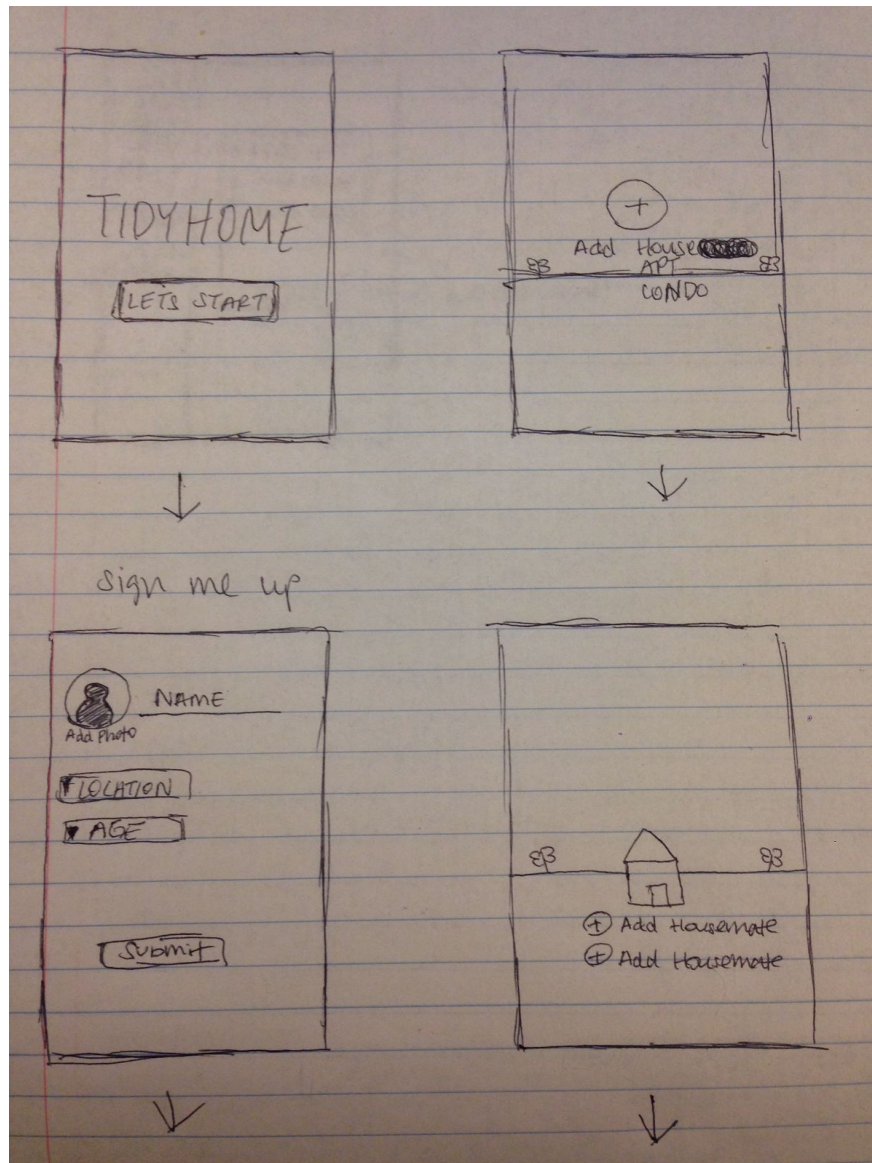 TIDYHOME
LETS START
sign me up
NAME
Add Photo
LOCATION
AGE
Submit
+
Add House
APT
CONDO
+ Add Housemate
+ Add Housemate